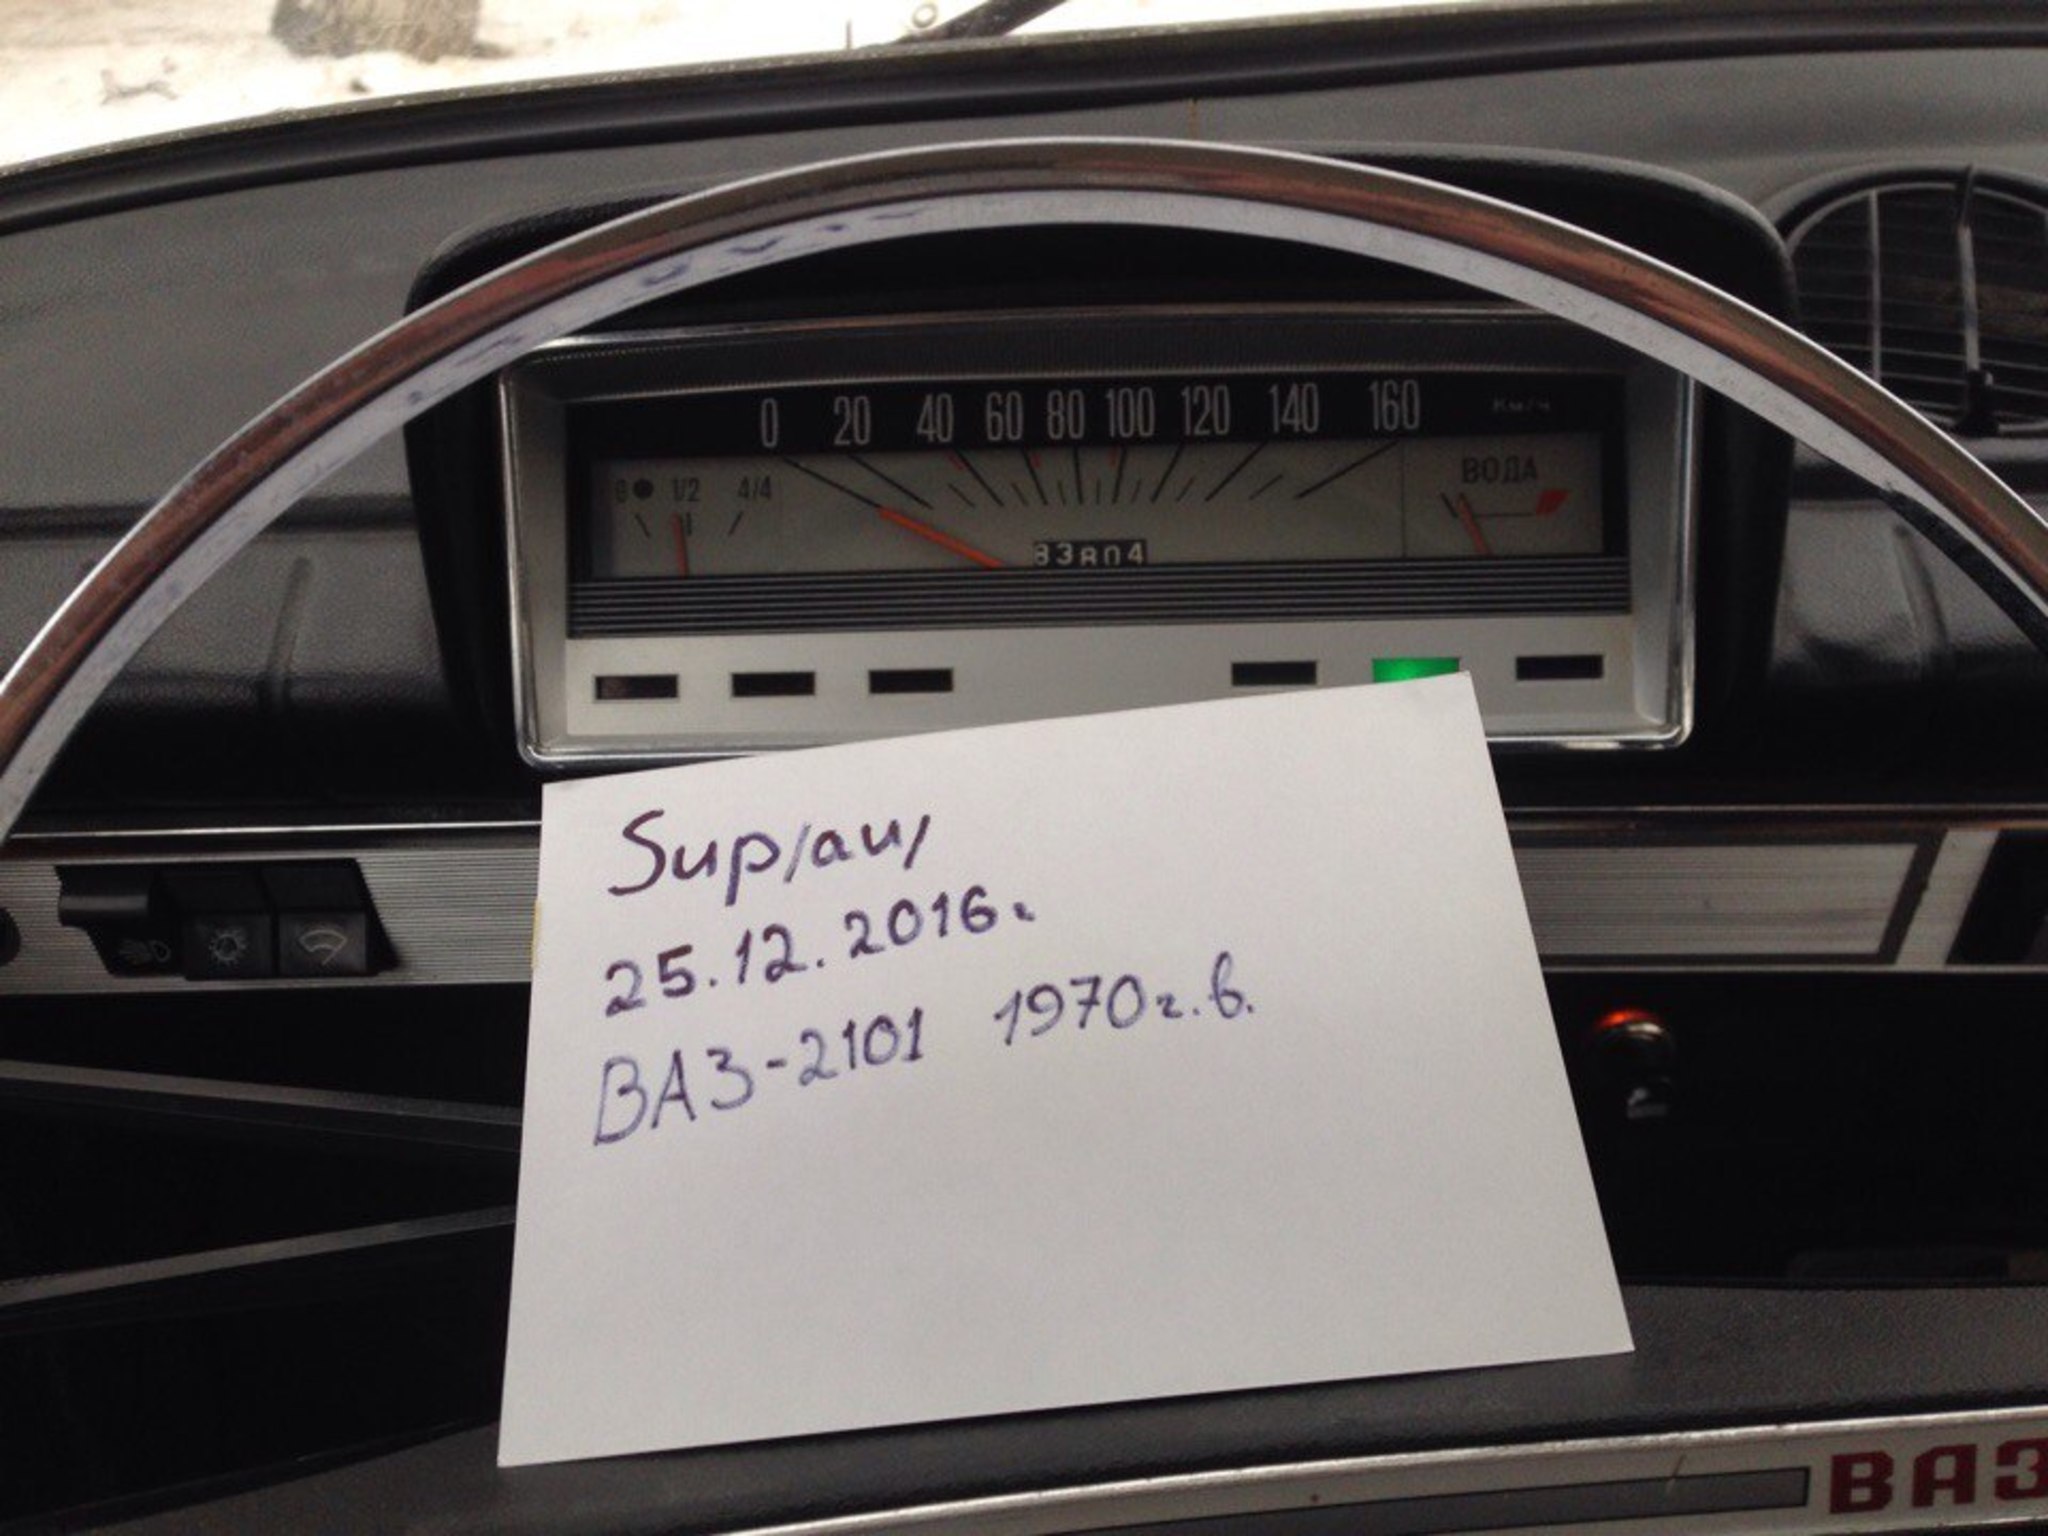 0 20 40 60 80 100 120 140 160 Км/ч
0 1/2 4/4
ВОДА
83804
Sup/au/
25.12.2016г.
ВАЗ-2101 1970г.в.
ВАЗ